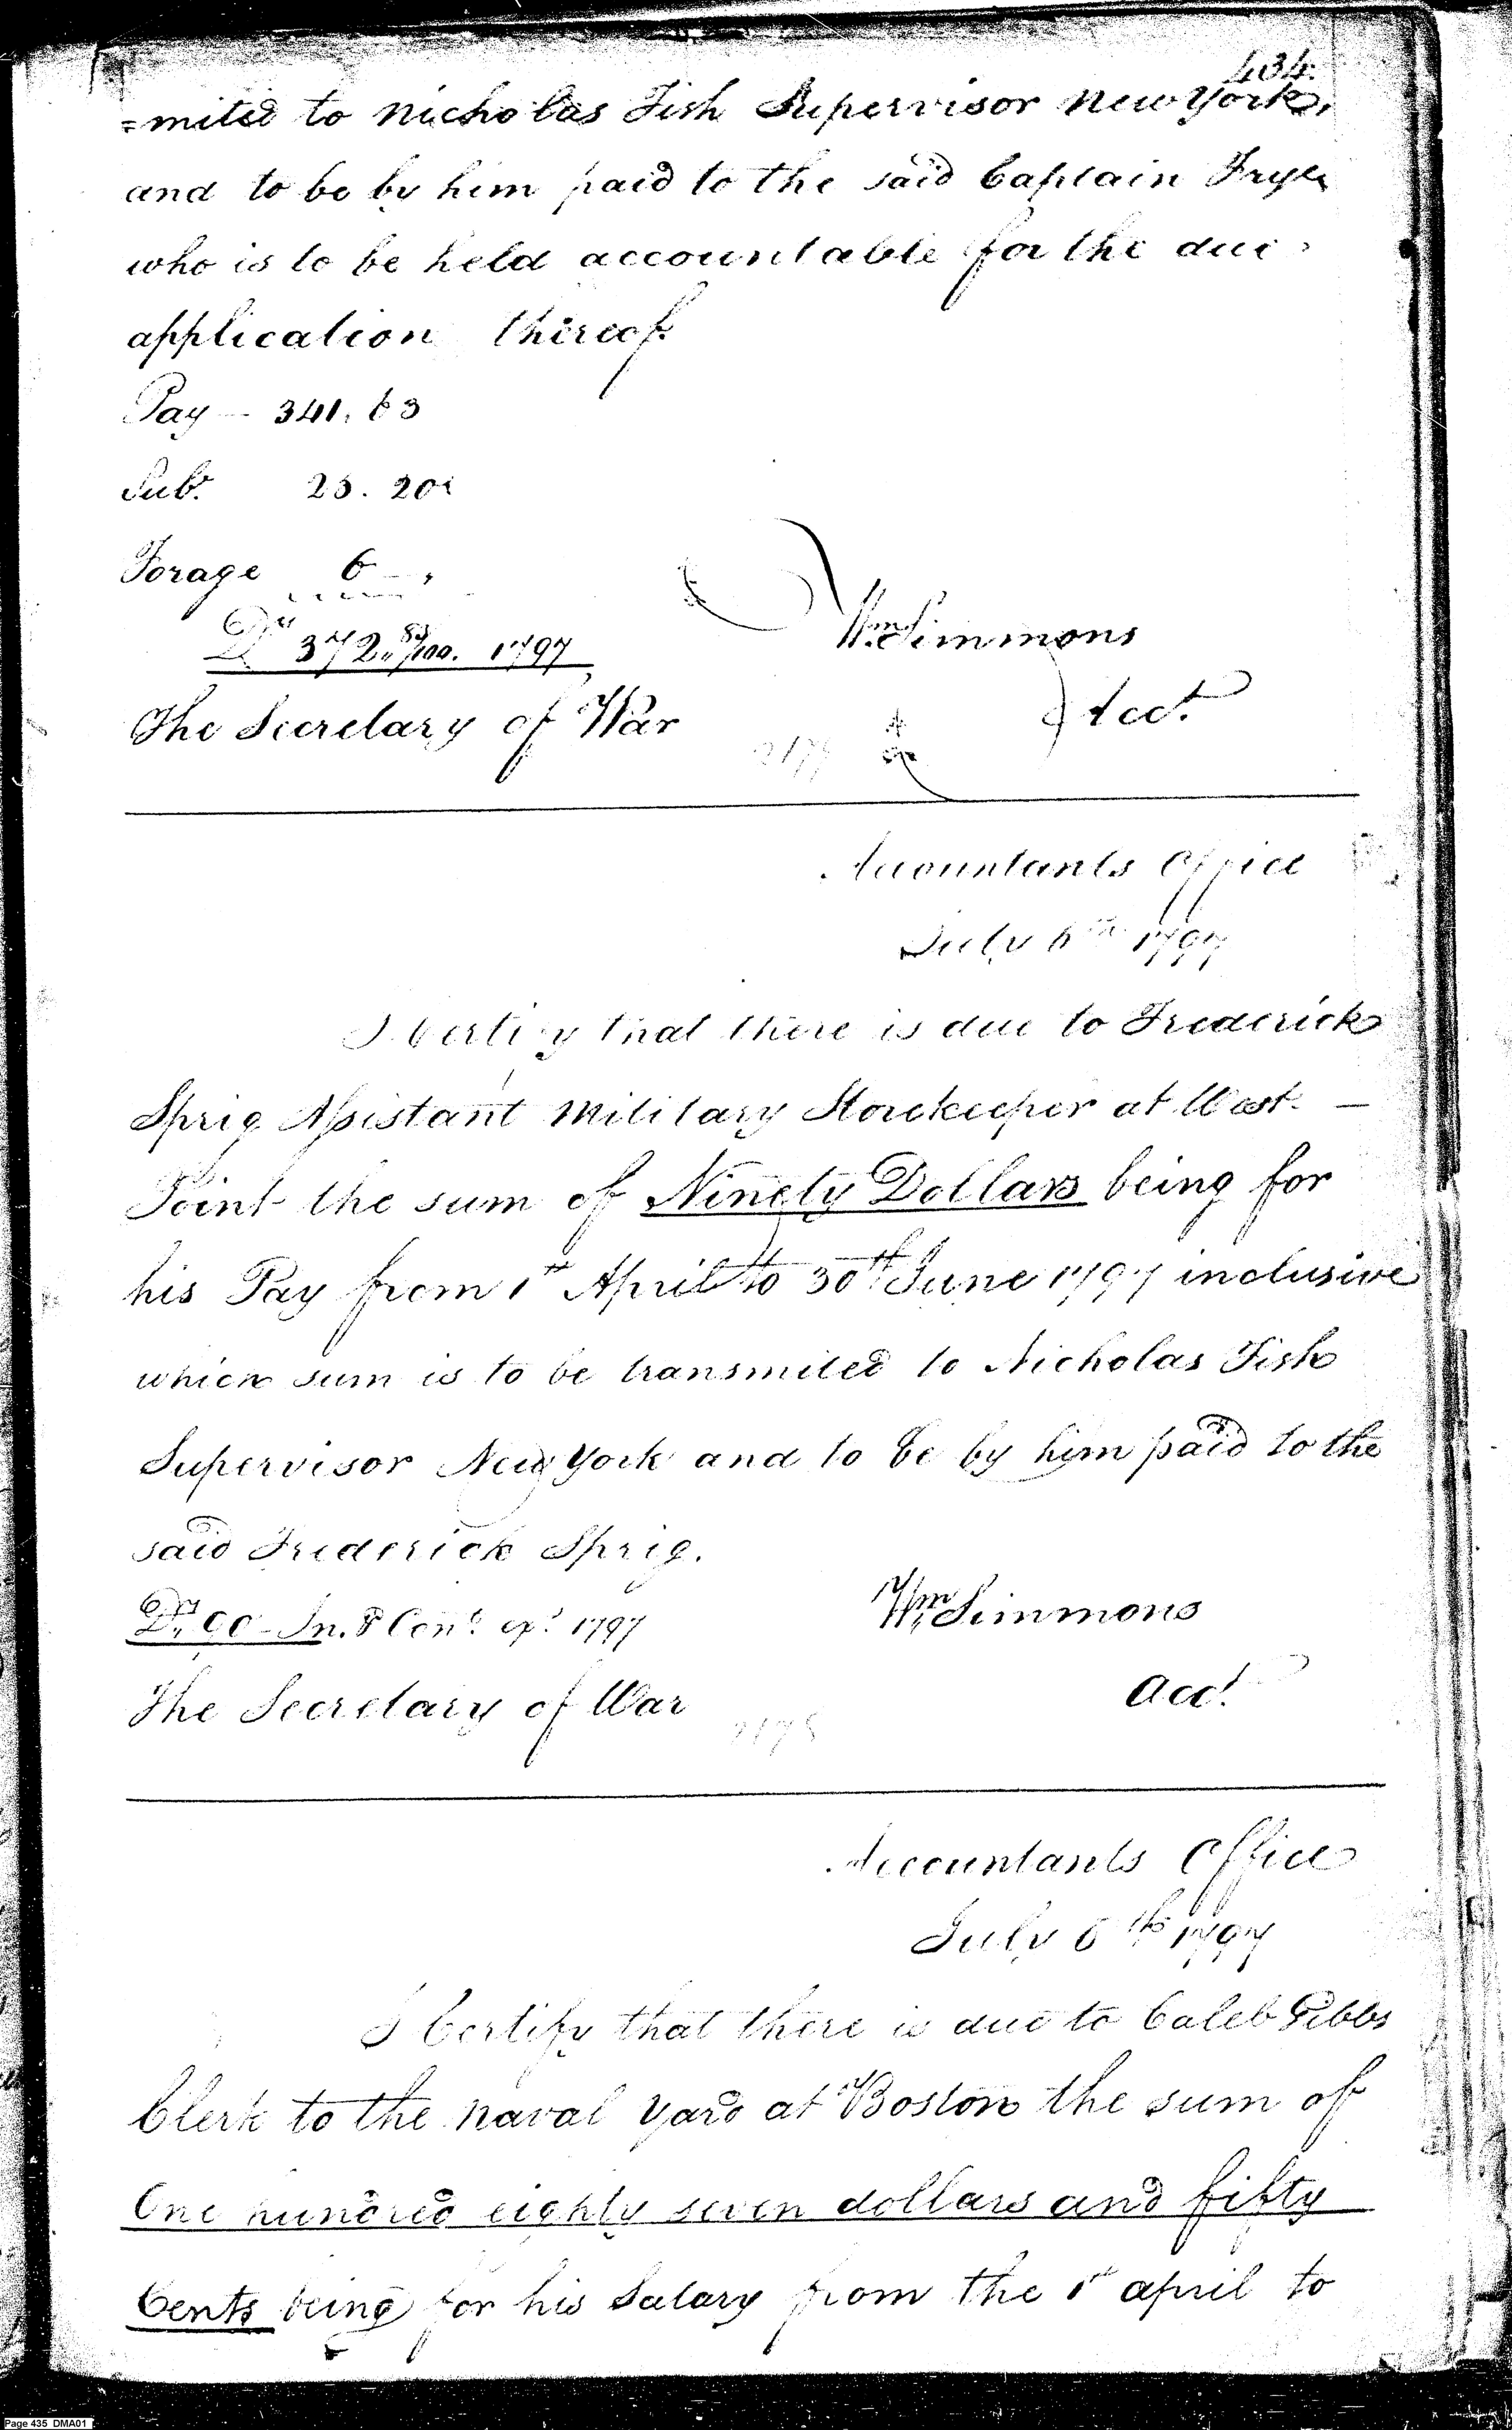 434.
=mited to Nicholas Fish Supervisor New York,
and to be by him paid to the said Captain Frye
who is to be held accountable for the due
application thereof.
Pay - 341. 63
Sub. 25. 20
Forage 6 - "
Drs 372 83/100. 1797
Wm Simmons
The Secretary of War
Acct.
Accountants Office
July 6th 1797
I Certify that there is due to Frederick
Sprig Assistant Military Storekeeper at West-
Point the sum of Ninety Dollars being for
his Pay from 1st April to 30th June 1797 inclusive
which sum is to be transmited to Nicholas Fish
Supervisor New York and to be by him paid to the
said Frederick Sprig.
Drs 90 - In. & Cont. exs. 1797
Wm Simmons
The Secretary of War
Acct.
2178
Accountants Office
July 6th 1797
I Certify that there is due to Caleb Gibbs
Clerk to the Naval Yard at Boston the sum of
One hundred eighty seven dollars and fifty
Cents being for his Salary from the 1st april to
Page 435 DMA01